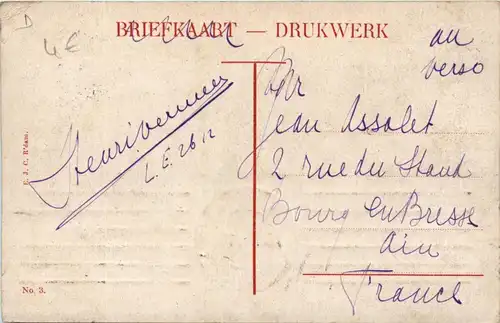 D
4 €
BRIEFKAART — DRUKWERK
au
verso
Jean Assolet
2 rue du Stand
Bourg en Bresse
Ain
France
L. E. 26 12
No. 3.